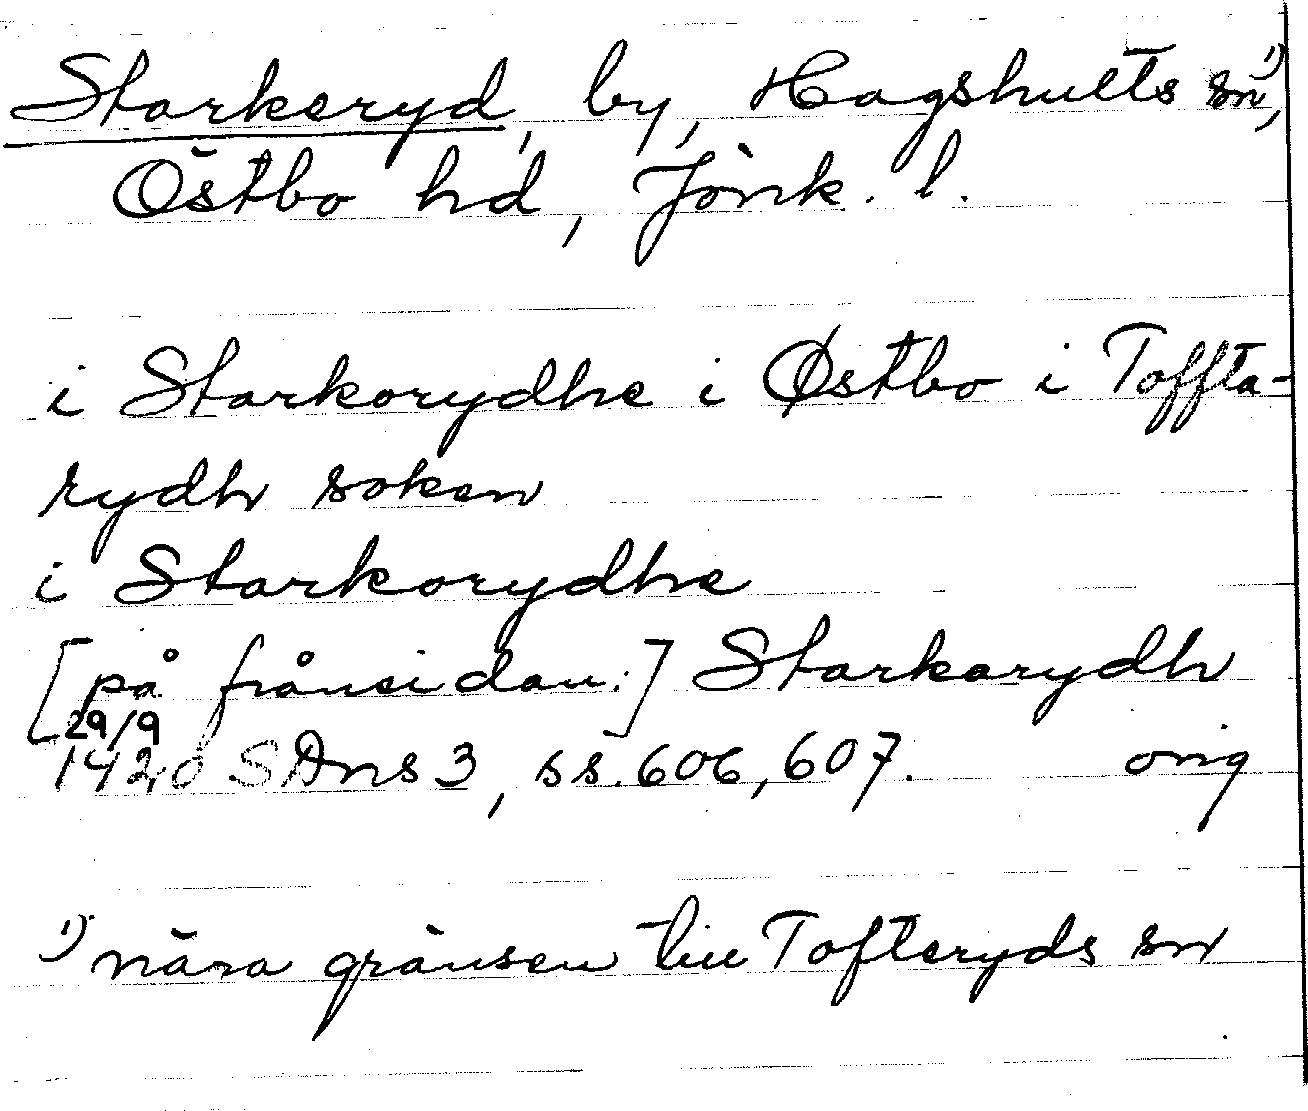 Starkeryd, by, Hagshults sn¹⁾,
Östbo hd, Jönk. l.
i Starkorydhe i Østbo i Toffta-
rydh soken
i Starkorydhe
[på frånsidan:] Starkarydh
29/9
1420 SDns 3, ss. 606, 607. orig
¹⁾ nära gränsen till Tofteryds sn